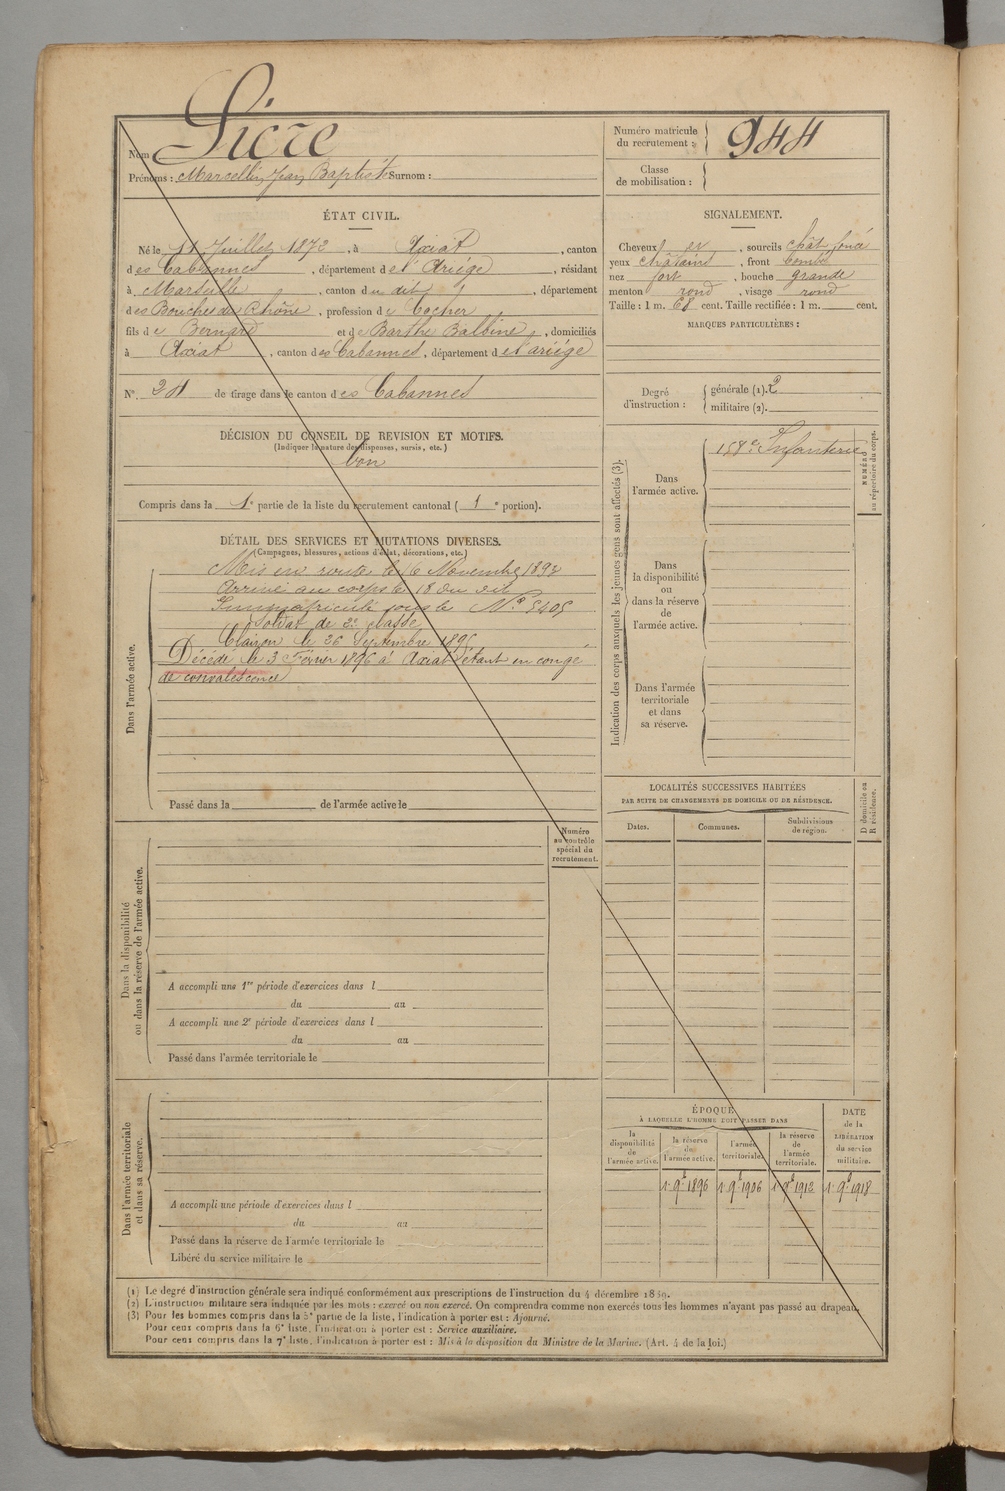 Nom Sicre
Prénoms : Marcellin Jean Baptiste Surnom :
Numéro matricule
du recrutement : 944
Classe
de mobilisation :
ÉTAT CIVIL.
Né le 11 Juillet 1872, à Axiat, canton
des Cabannes, département de l'Ariége, résidant
à Marseille, canton du dit, département
des Bouches du Rhône, profession de Cocher
fils de Bernard et de Barthe Balbine, domiciliés
à Axiat, canton des Cabannes, département de l'ariége
N° 21 de tirage dans le canton des Cabannes
SIGNALEMENT.
Cheveux et, sourcils chât foncé
yeux châtains, front bombé
nez fort, bouche grande
menton rond, visage rond
Taille : 1 m. 68 cent. Taille rectifiée : 1 m. cent.
MARQUES PARTICULIÈRES :
Degré
d'instruction :
générale (1). 2
militaire (2).
DÉCISION DU CONSEIL DE REVISION ET MOTIFS.
(Indiquer la nature des dispenses, sursis, etc.)
bon
Compris dans la 1e partie de la liste du recrutement cantonal ( 1 e portion).
DÉTAIL DES SERVICES ET MUTATIONS DIVERSES.
(Campagnes, blessures, actions d'éclat, décorations, etc.)
Dans l'armée active.
Mis en route le 16 Novembre 1893
Arrivé au corps le 18 du dit
Immatriculé sous le N° 5405
Soldat de 2e classe
Clairon le 26 Septembre 1895
Décédé le 3 Février 1896 à Axiat étant en congé
de convalescence
Passé dans la de l'armée active le
Indication des corps auxquels les jeunes gens sont affectés (3).
Dans
l'armée active.
158e Infanterie
NUMÉRO
au répertoire du corps.
Dans
la disponibilité
ou
dans la réserve
de
l'armée active.
Dans l'armée
territoriale
et dans
sa réserve.
LOCALITÉS SUCCESSIVES HABITÉES
PAR SUITE DE CHANGEMENTS DE DOMICILE OU DE RÉSIDENCE.
Dates.
Communes.
Subdivisions
de région.
D domicile ou
R résidence.
Numéro
au contrôle
spécial du
recrutement.
Dans la disponibilité
ou dans la réserve de l'armée active.
A accompli une 1re période d'exercices dans l
du au
A accompli une 2e période d'exercices dans l
du au
Passé dans l'armée territoriale le
Dans l'armée territoriale
et dans sa réserve.
A accompli une période d'exercices dans l
du au
Passé dans la réserve de l'armée territoriale le
Libéré du service militaire le
ÉPOQUE
À LAQUELLE L'HOMME DOIT PASSER DANS
la
disponibilité
de
l'armée active.
la réserve
de
l'armée active.
l'armée
territoriale.
la réserve
de
l'armée
territoriale.
DATE
de la
LIBÉRATION
du service
militaire.
1. 9e 1896 1. 9e 1906 1. 9e 1912 1. 9e 1918
(1) Le degré d'instruction générale sera indiqué conformément aux prescriptions de l'instruction du 4 décembre 1889.
(2) L'instruction militaire sera indiquée par les mots : exercé ou non exercé. On comprendra comme non exercés tous les hommes n'ayant pas passé au drapeau.
(3) Pour les hommes compris dans la 5e partie de la liste, l'indication à porter est : Ajourné.
Pour ceux compris dans la 6e liste, l'indication à porter est : Service auxiliaire.
Pour ceux compris dans la 7e liste, l'indication à porter est : Mis à la disposition du Ministre de la Marine. (Art. 4 de la loi.)